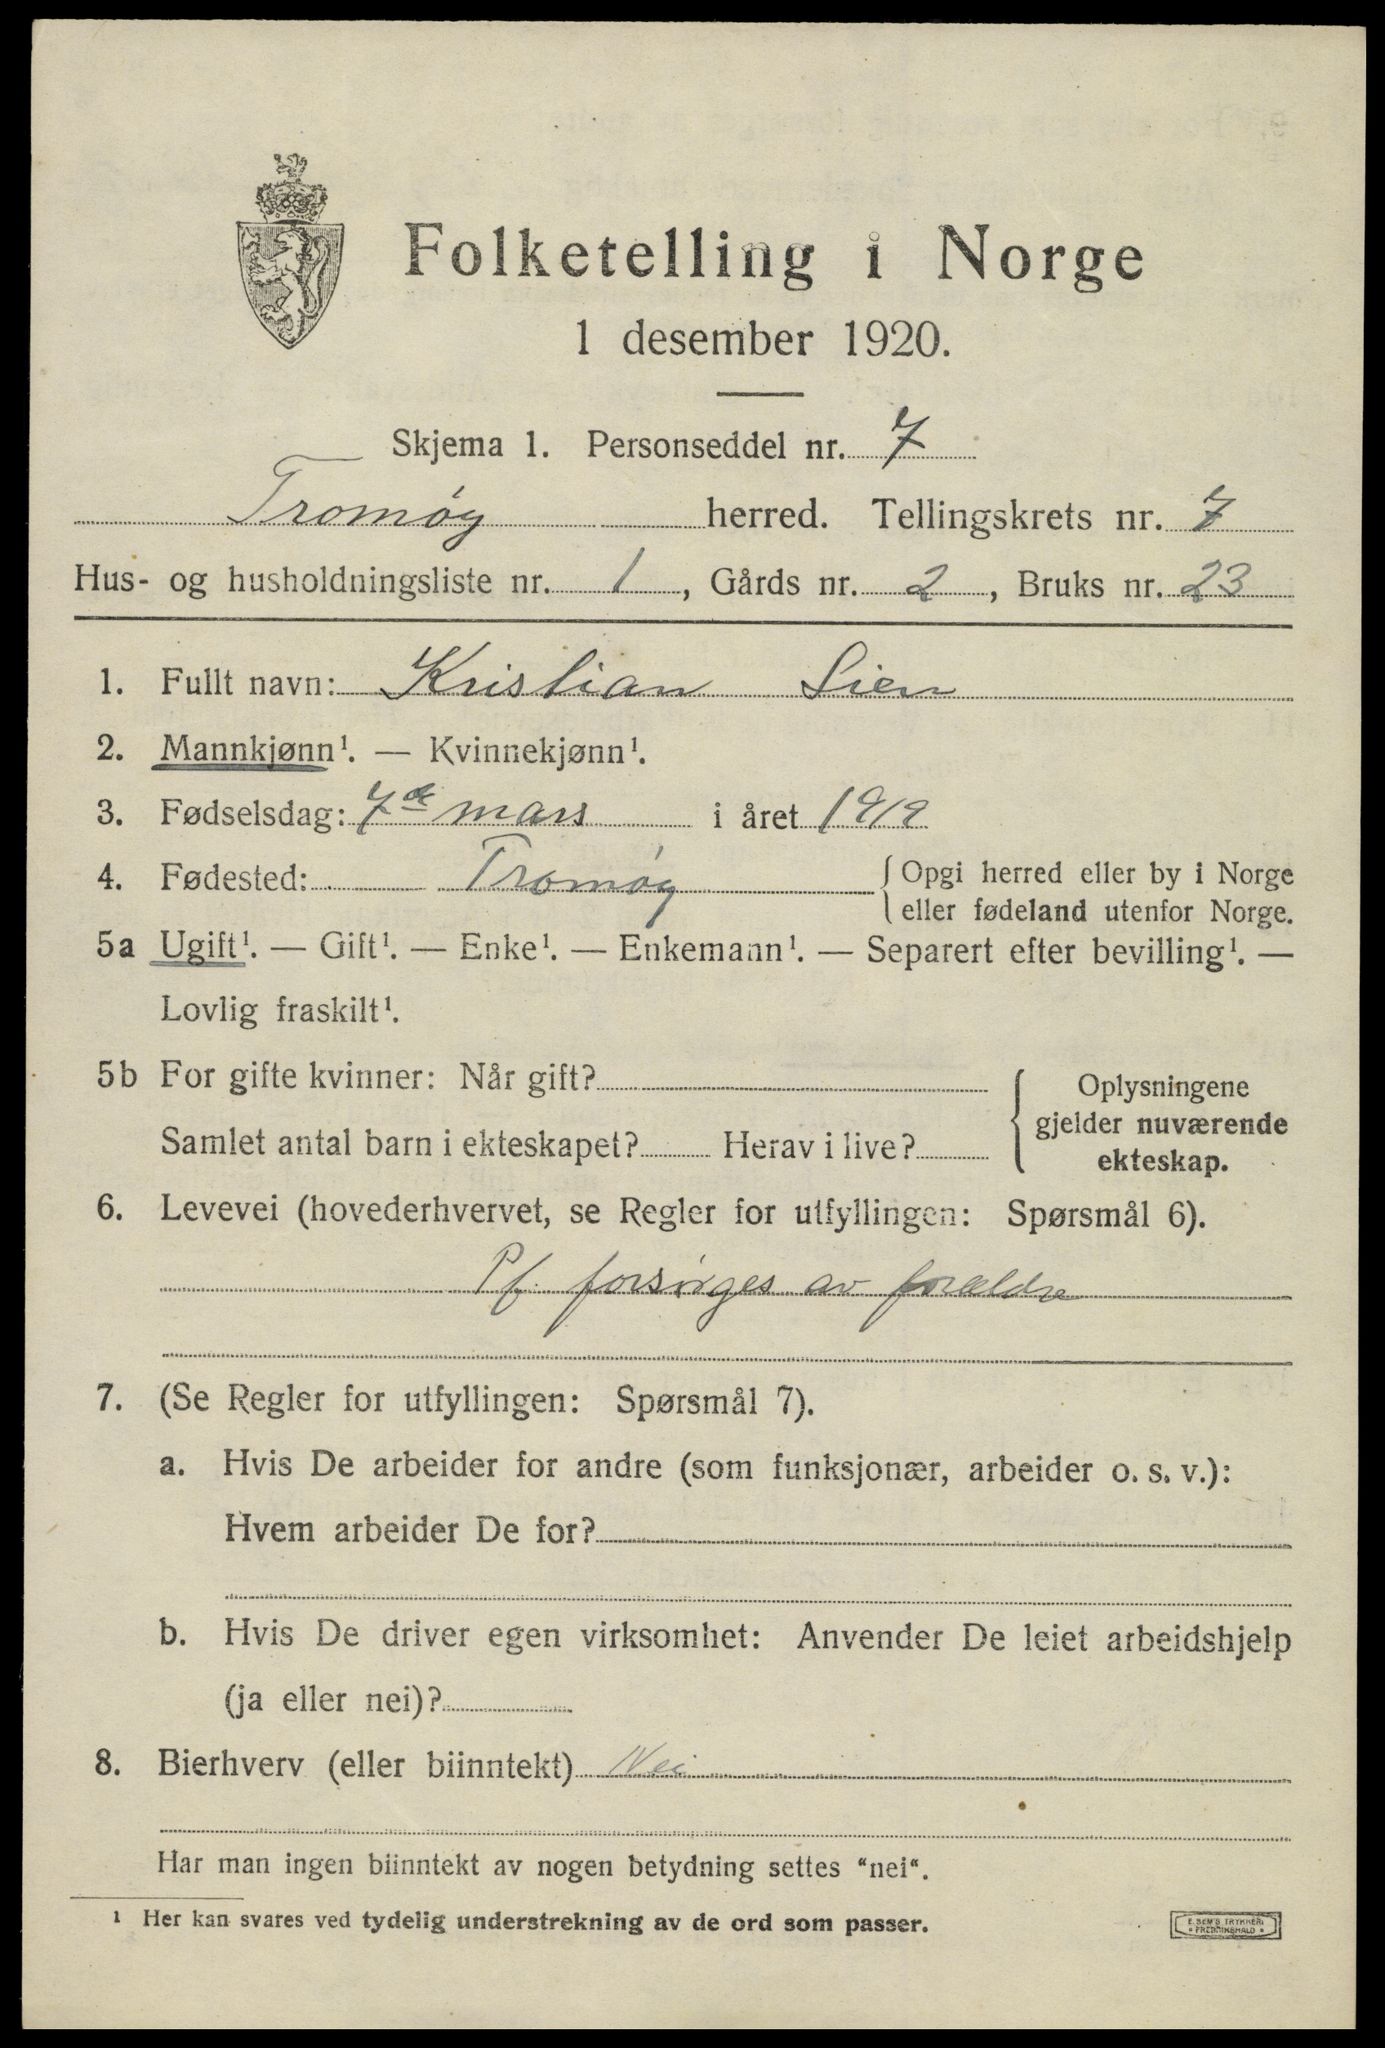 Folketelling i Norge
1 desember 1920.
Skjema 1. Personseddel nr. 7
Tromøy herred. Tellingskrets nr. 7
Hus- og husholdningsliste nr. 1, Gårds nr. 2, Bruks nr. 23
1. Fullt navn: Kristian Lien
2. Mannkjønn¹. — Kvinnekjønn¹.
3. Fødselsdag: 7de mars i året 1919
4. Fødested: Tromøy { Opgi herred eller by i Norge
eller fødeland utenfor Norge.
5a Ugift¹. — Gift¹. — Enke¹. — Enkemann¹. — Separert efter bevilling¹. —
Lovlig fraskilt¹.
5b For gifte kvinner: Når gift? { Oplysningene
gjelder nuværende
Samlet antal barn i ekteskapet? Herav i live? ekteskap.
6. Levevei (hovederhvervet, se Regler for utfyllingen: Spørsmål 6).
Pf. forsørges av forældre
7. (Se Regler for utfyllingen: Spørsmål 7).
a. Hvis De arbeider for andre (som funksjonær, arbeider o. s. v.):
Hvem arbeider De for?
b. Hvis De driver egen virksomhet: Anvender De leiet arbeidshjelp
(ja eller nei)?
8. Bierhverv (eller biinntekt) Nei
Har man ingen biinntekt av nogen betydning settes “nei“.
¹ Her kan svares ved tydelig understrekning av de ord som passer.
E. SEM'S TRYKKERI
* FREDRIKSHALD *